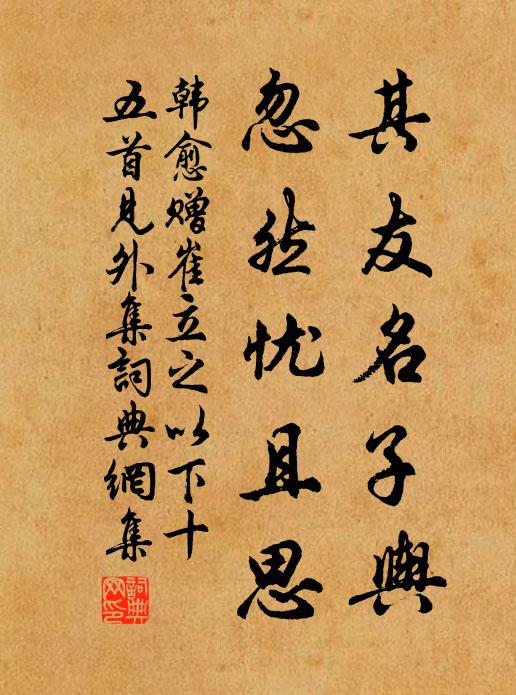 其友名子輿
忽然忧且思
韩愈赠崔立之以下十
五首見外集詞典網集
詞典网印